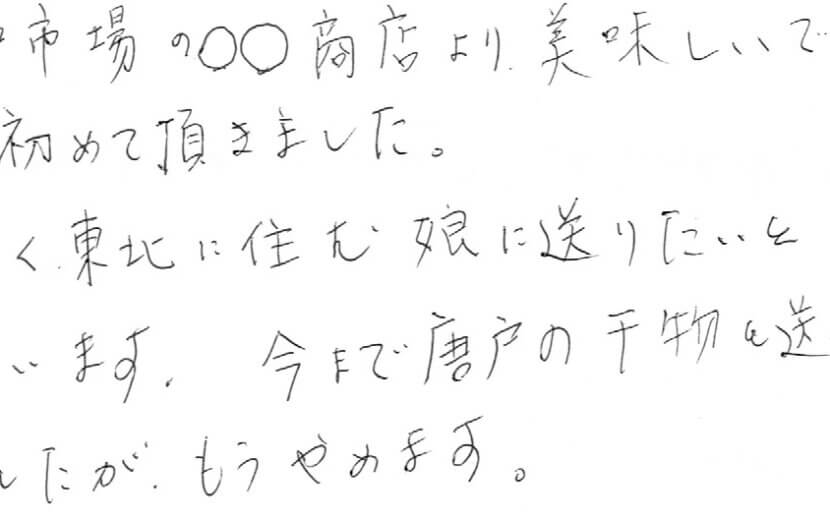 市場の〇〇商店より、美味しいで
初めて頂きました。
く、東北に住む娘に送りたいと
います。 今まで唐戸の干物を送
したが、もうやめます。